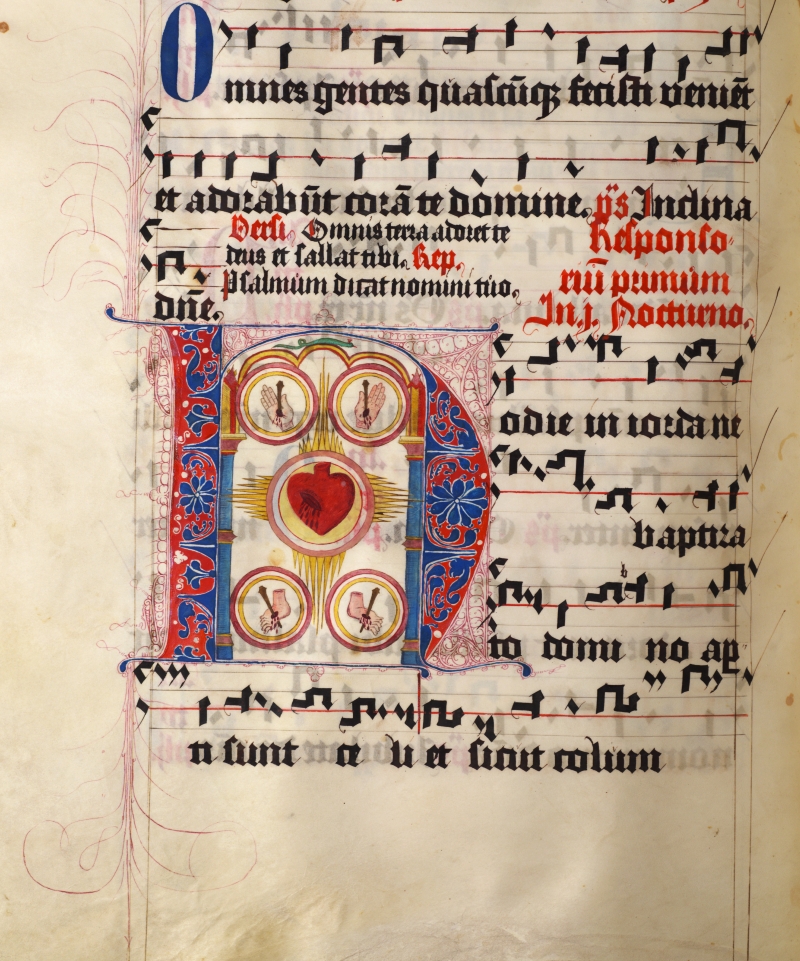 Omnes gentes quascūqꝫ fecisti veniēt
et adorabūt corā te domine. p̄s Inclina
Versi. Omnis terra adoret te
deus et sallat tibi. Rep.
Psalmum dicat nomini tuo.
dn̄e.
Responso-
riū primum
In .j. Nocturno.
Hodie in iordane
baptiza
to domino ap
ti sunt celi et sicut colum